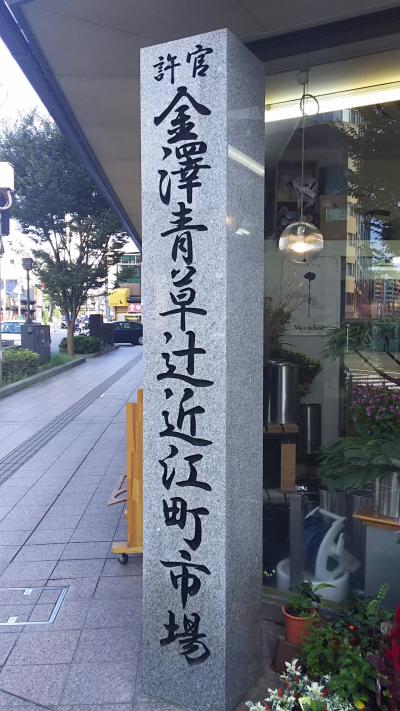 官許
金澤青草辻近江町市場